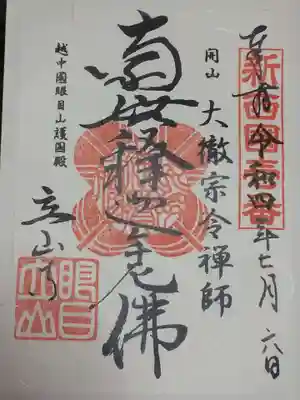 奉拝 令和四年七月六日
開山 大徹宗令禅師
南無釋迦牟尼佛
越中國眼目山護国殿
立山寺
眼目